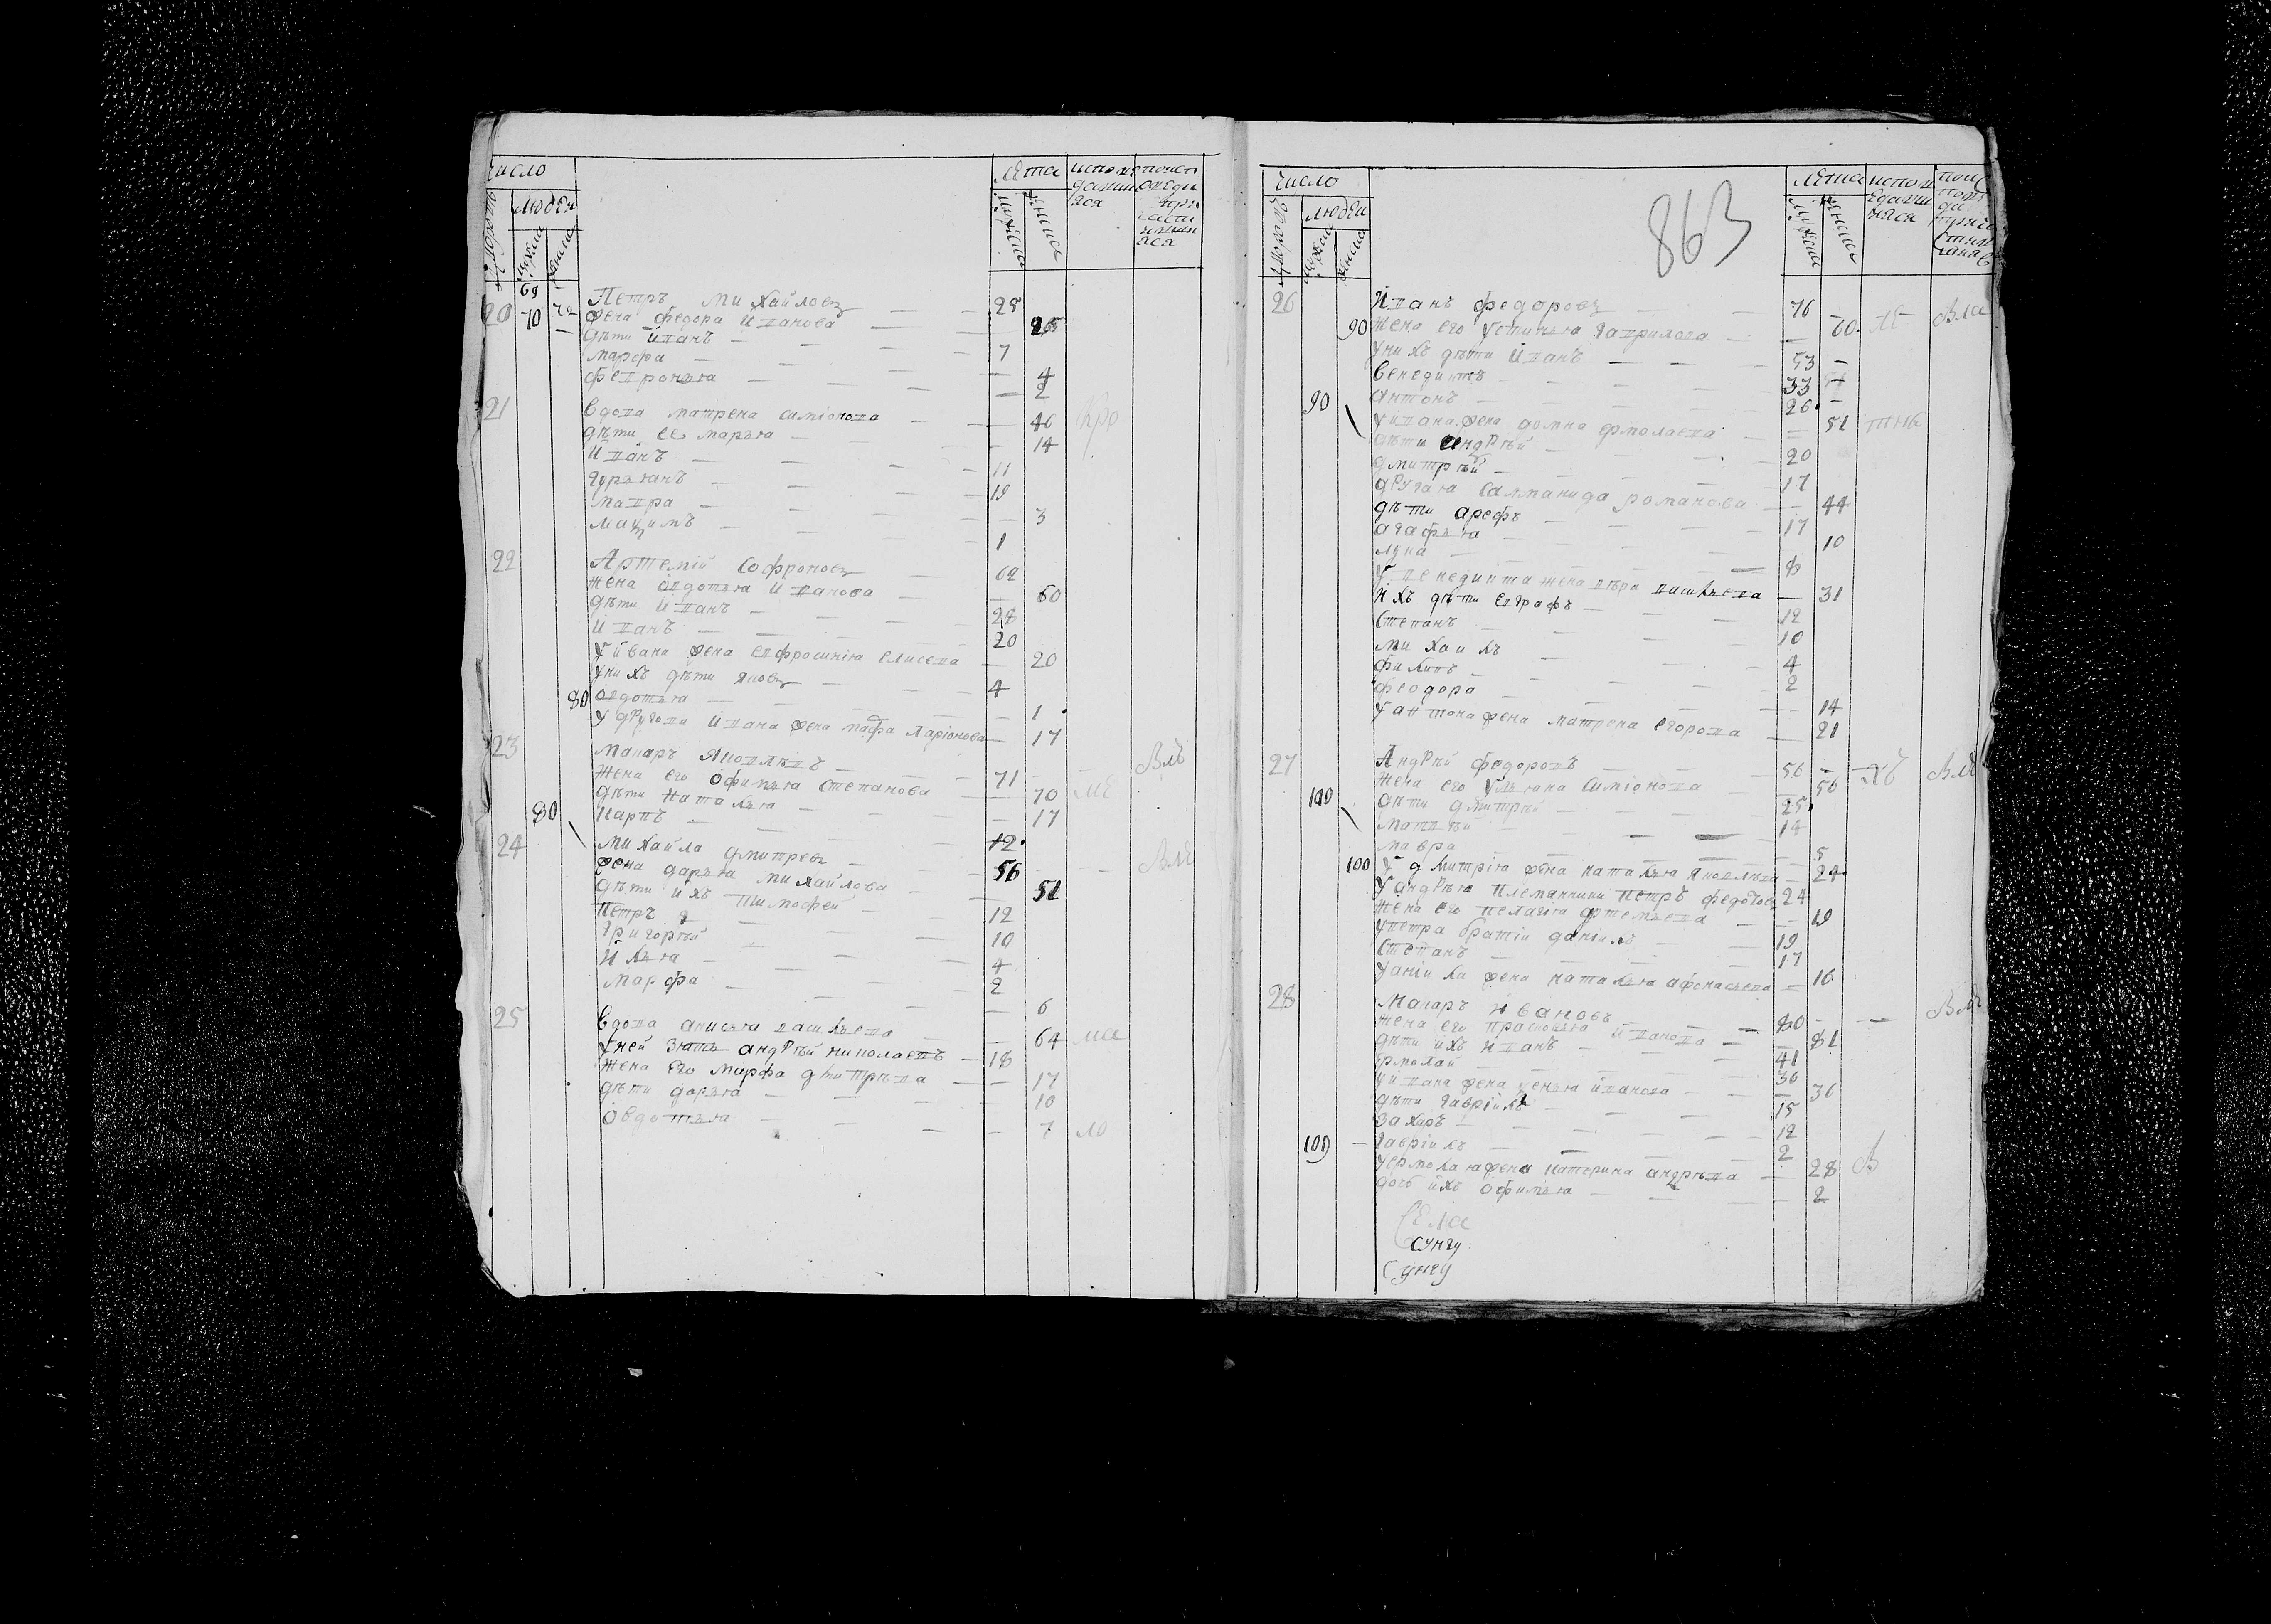 число
людей
мужска
женска
лѣта
мужска
женска
69
20 70 72 Петръ михайловъ 25
жена федора иванова 25
дѣти иванъ 7
марфа 4
февронья 2
21 вдова матрена симіонова 46
дѣти ее марья 14
иванъ 11
гурьянъ 19
мавра 3
1
22 Артемій софроновъ 62
жена овдотья иванова 60
дѣти иванъ 28
иванъ 20
у ивана жена евфросинія елисева 20
у нихъ дѣти яковъ 4
80 овдотья 1
у другова ивана жена марфа ларіонова 17
23 макаръ яковлевъ 71
жена его офимья степанова 70
дѣти наталья 17
80 карпъ 12
24 михайла дмитревъ 56
жена дарья михайлова 51
дѣти ихъ тимофей 12
петръ 10
григорьй 4
илья 2
марфа 6
25 вдова анисья васильева 64
у ней зять андрѣй николаевъ 18
жена его марфа дмитрѣва 17
дѣти дарья 10
овдотья 7
863
число
людей
мужска
женска
лѣта
мужска
женска
26 иванъ федоровъ 76
90 жена его устинья гаврилова 60
у нихъ дѣти иванъ 53
венедиктъ 33
90 антонъ 26
у ивана жена домна ермолаева 51
дѣти андрѣй 20
дмитрѣй 17
другая саломанида романова 44
дѣти арефъ 17
агафья 10
лука 8
у венедикта жена вѣра васильева 31
ихъ дѣти евграфъ 12
степанъ 10
михаилъ 4
филипъ 2
феодора 14
у антона жена матрена егорова 21
27 Андрѣй федоровъ 56
жена его ульяна симіонова 56
100 дѣти дмитрѣй 25
матвѣй 14
мавра 5
100 у дмитрія жена наталья яковлѣва 24
у андрѣя племянники петръ федотовъ 24
жена его пелагея артемьева 19
у петра братіи даніилъ 19
степанъ 17
у даніила жена наталья афонасьева 16
28 макаръ ивановъ 80
жена его прасковья иванова 81
дѣти ихъ иванъ 41
ермолай 36
у ивана жена ксенья иванова 36
дѣти гавріилъ 15
захаръ 12
109 гавріилъ 2
у ермолая жена катерина андрѣва 28
дочь ихъ офимья 2
села
сунгу
сунгу